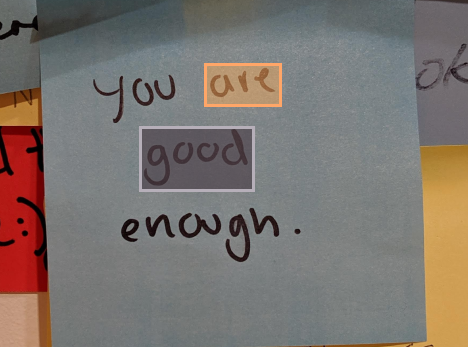 you are
good
enough.
ok
:)